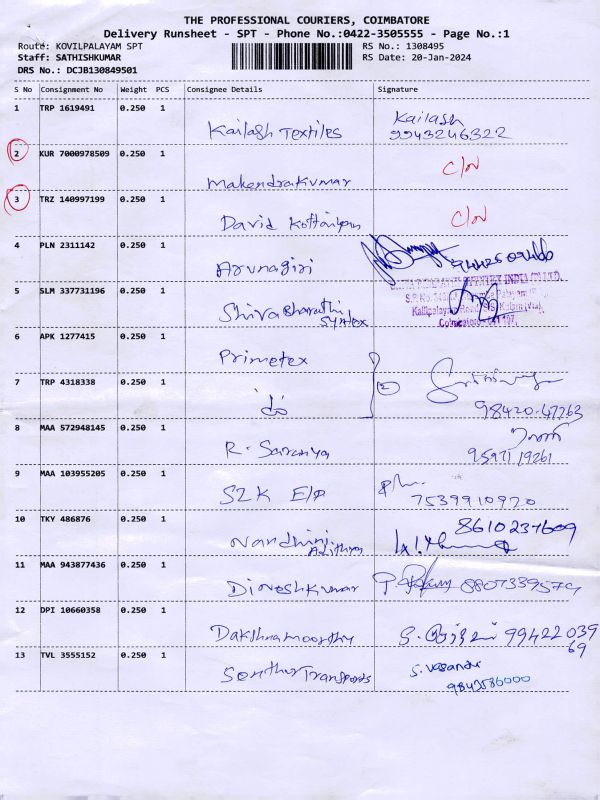 THE PROFESSIONAL COURIERS, COIMBATORE
Delivery Runsheet - SPT - Phone No.:0422-3505555 - Page No.:1
Route: KOVILPALAYAM SPT RS No.: 1308495
Staff: SATHISHKUMAR RS Date: 20-Jan-2024
DRS No.: DCJB130849501
S No Consignment No Weight PCS Consignee Details Signature
1 TRP 1619491 0.250 1 Kailash Textiles Kailash
9943246322
2 KUR 7000978509 0.250 1 Mahendrakumar
3 TRZ 140997199 0.250 1 David
4 PLN 2311142 0.250 1 Arunagiri
5 SLM 337731196 0.250 1 Shiva Bharathi
Syntex
6 APK 1277415 0.250 1 Primetex
7 TRP 4318338 0.250 1 2
98420-47763
8 MAA 572948145 0.250 1 R. Saranya
9597119261
9 MAA 103955205 0.250 1 SZK E/P
7539910920
10 TKY 486876 0.250 1 Nandhini
Adithya
8610237609
11 MAA 943877436 0.250 1 Dineshkumar 8807339574
12 DPI 10660358 0.250 1 Dakshnamoorthy 99422 039
69
13 TVL 3555152 0.250 1 Senthur Transports
9843586000